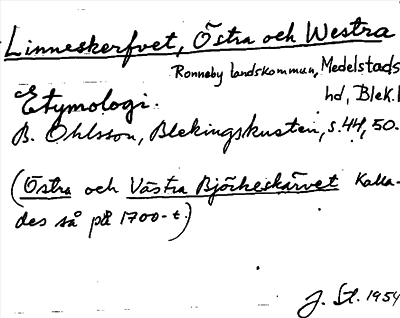 Linneskerfvet, Östra och Westra
Ronneby landskommun, Medelstads
hd, Blek.l
Etymologi.
B. Ohlsson, Blekingskusten, s. 44, 50.
(Östra och Västra Björkeskärvet kalla-
des så på 1700-t.)
J. St. 1954